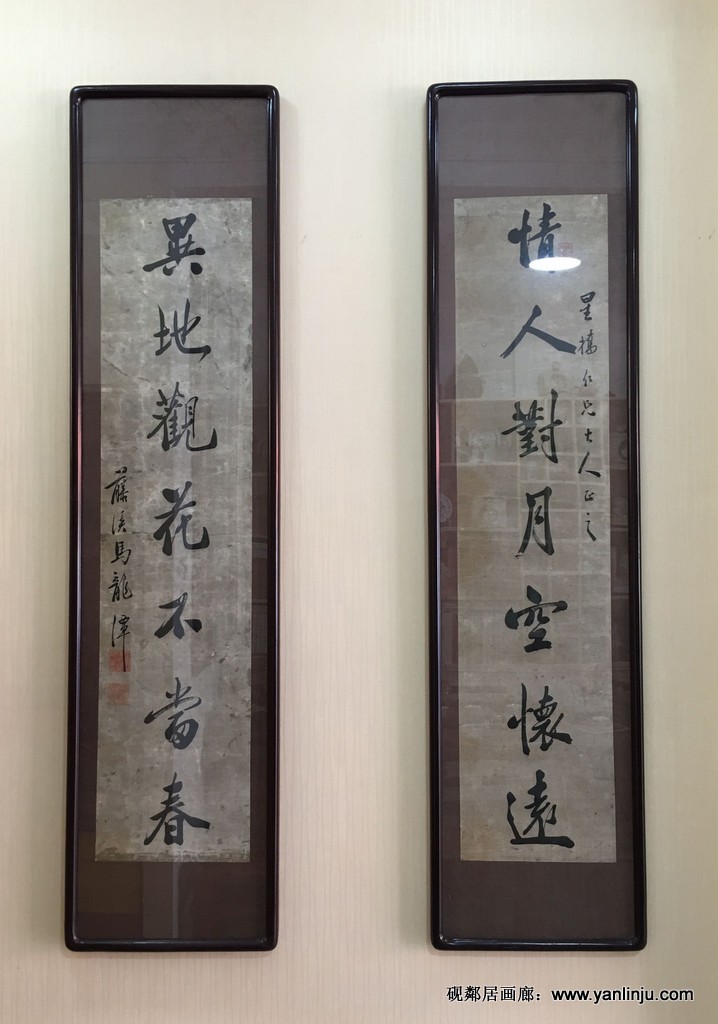 情人對月空懷遠
星橋仁兄大人正之
異地觀花不當春
藤溪馬龍潭
砚鄰居画廊：www.yanlinju.com